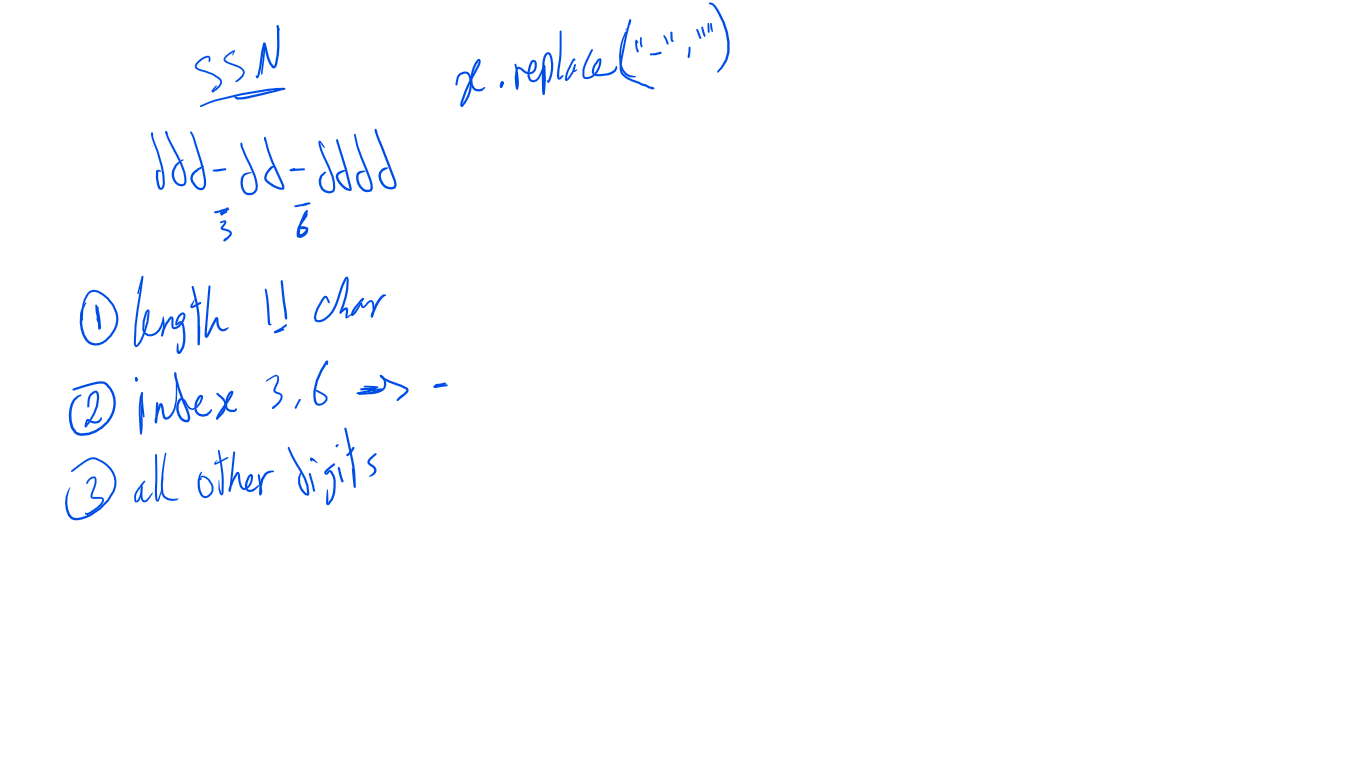 SSN
x.replace("-","")
ddd-dd-dddd
3 6
① length 11 char
② index 3,6 => -
③ all other digits